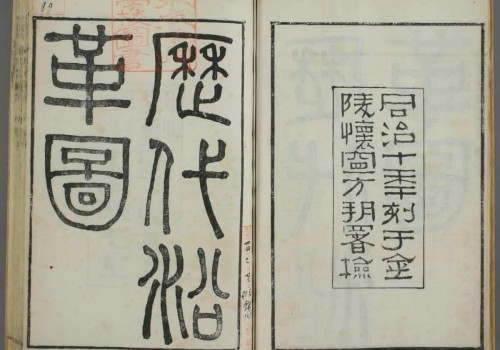 同治十年刻于金
陵懷甯方朔署撿
歷代沿
革圖